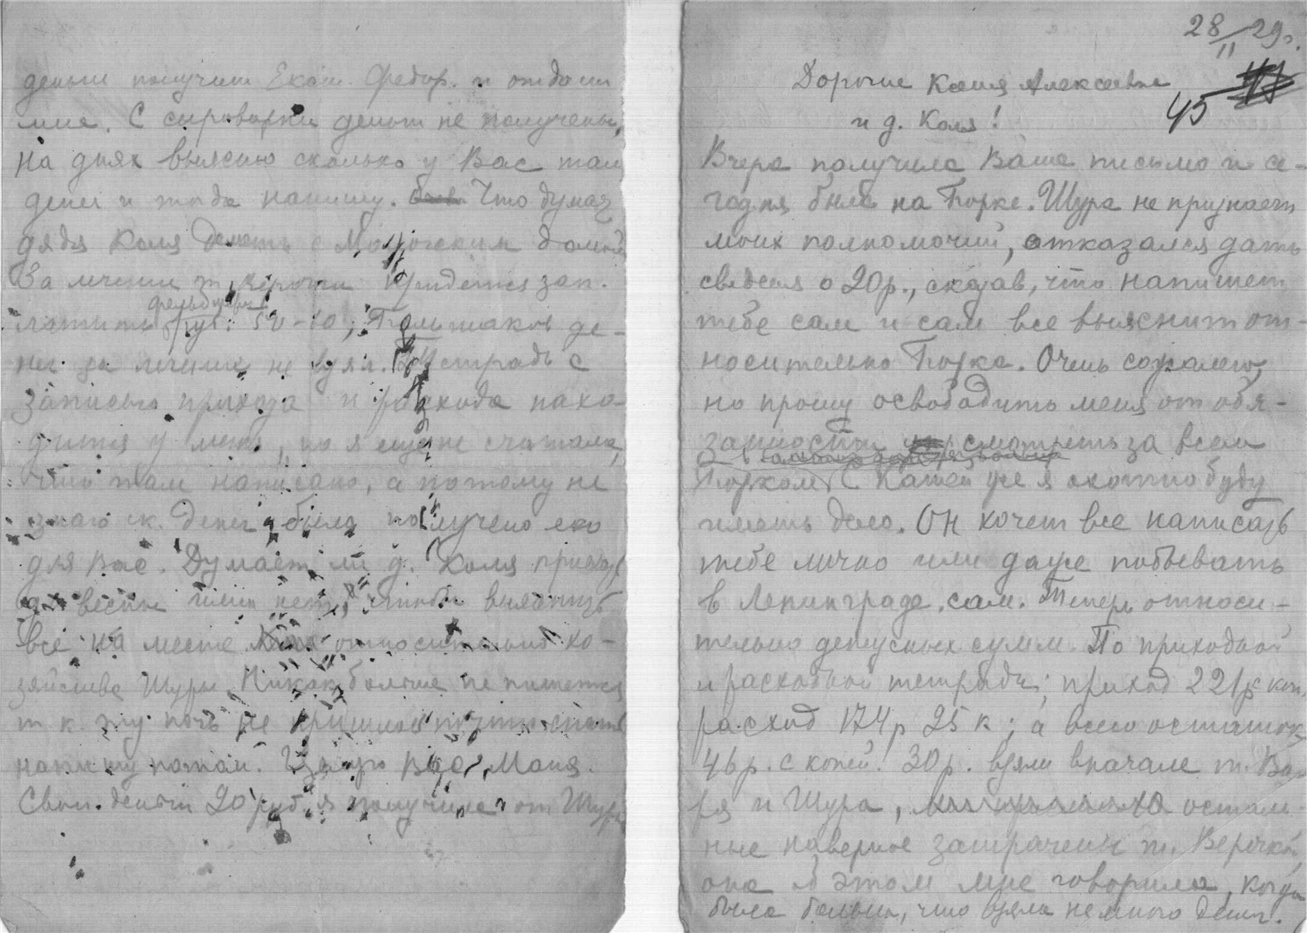 28/II 29г.
45
Дорогие Катя Алексеевна
и д. Коля!
Вчера получила Ваше письмо и се-
годня была на Горке. Шура не признает
моих полномочий, отказался дать
сведения о 20р., сказав, что напишет
тебе сам и сам все выяснит от-
носительно Горка. Очень сожалею,
но прошу освободить меня от обя-
занности смотреть за всем
С Катей же я охотно буду
иметь дело. Он хочет все написать
тебе лично или даже побывать
в Ленинграде сам. Теперь относи-
тельно денежных сумм. По приходной
и расходной тетради: приход 221р коп
расход 174р 25к; а всего остаток
46р. с копей. 30р. взяли вначале т. Ва
ря и Шура, осталь-
ные наверное затрачены т. Верочкой
она об этом мне говорила, когда
была больна, что взяла немного денег.
деньги получит Екат. Федор. и отдаст
мне. С сыроварни деньги не получены,
на днях выясню сколько у Вас там
денег и тогда напишу. Что думает
дядя Коля делать с домом
За лечение т. Верочки придется зап-
латить фельдшеру руб. 50-10, де-
нег за лечение не взял. Тетрадь с
записью прихода и расхода нахо-
дится у меня, но я еще не считала,
что там написано, а потому не
знаю ск. денег было получено
для Вас. Думает ли д. Коля приехать
до весны или нет, чтобы выяснить
все на месте относительно хо-
зяйства Шуры. Никак больше не пишется
т.к. эту ночь не пришлось почти спать
напишу потом. Целую Вас, Маня.
Свои деньги 20 руб. я получила от Шуры